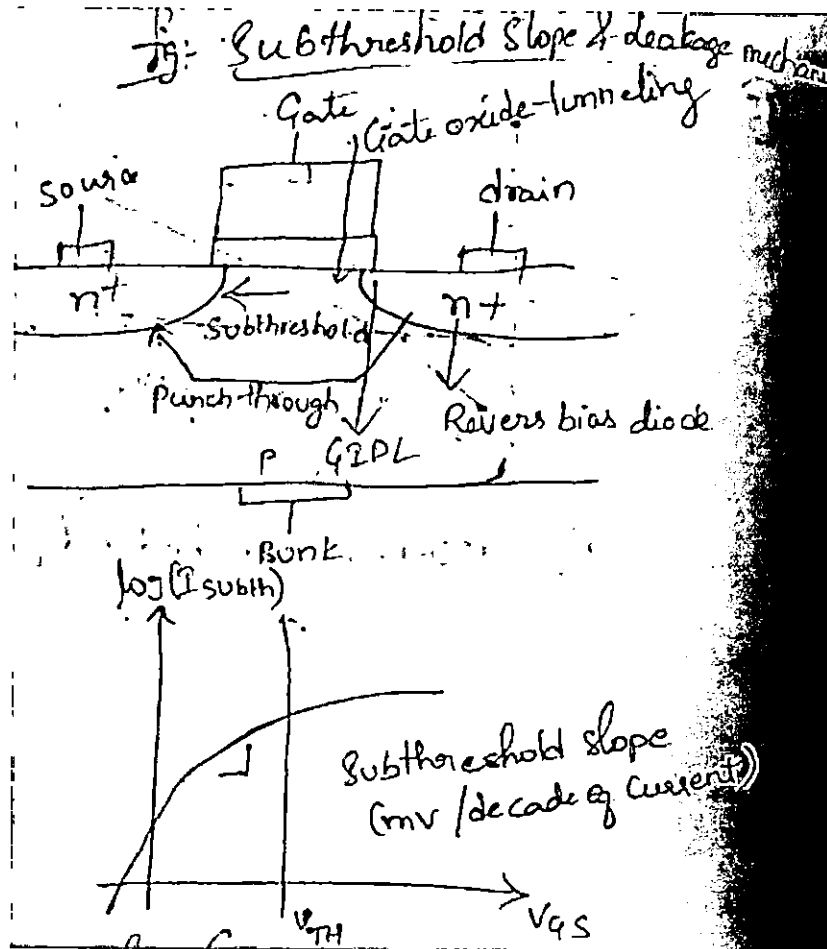 Fig:- Subthreshold Slope & leakage
Gate
Gate oxide-tunneling
Source
drain
n+
n+
Subthreshold
Punch through
Revers bias diode
P
GIDL
Bunk
log(I subth)
Subthreshold Slope
(mv/decade of Current)
VTH
VGS